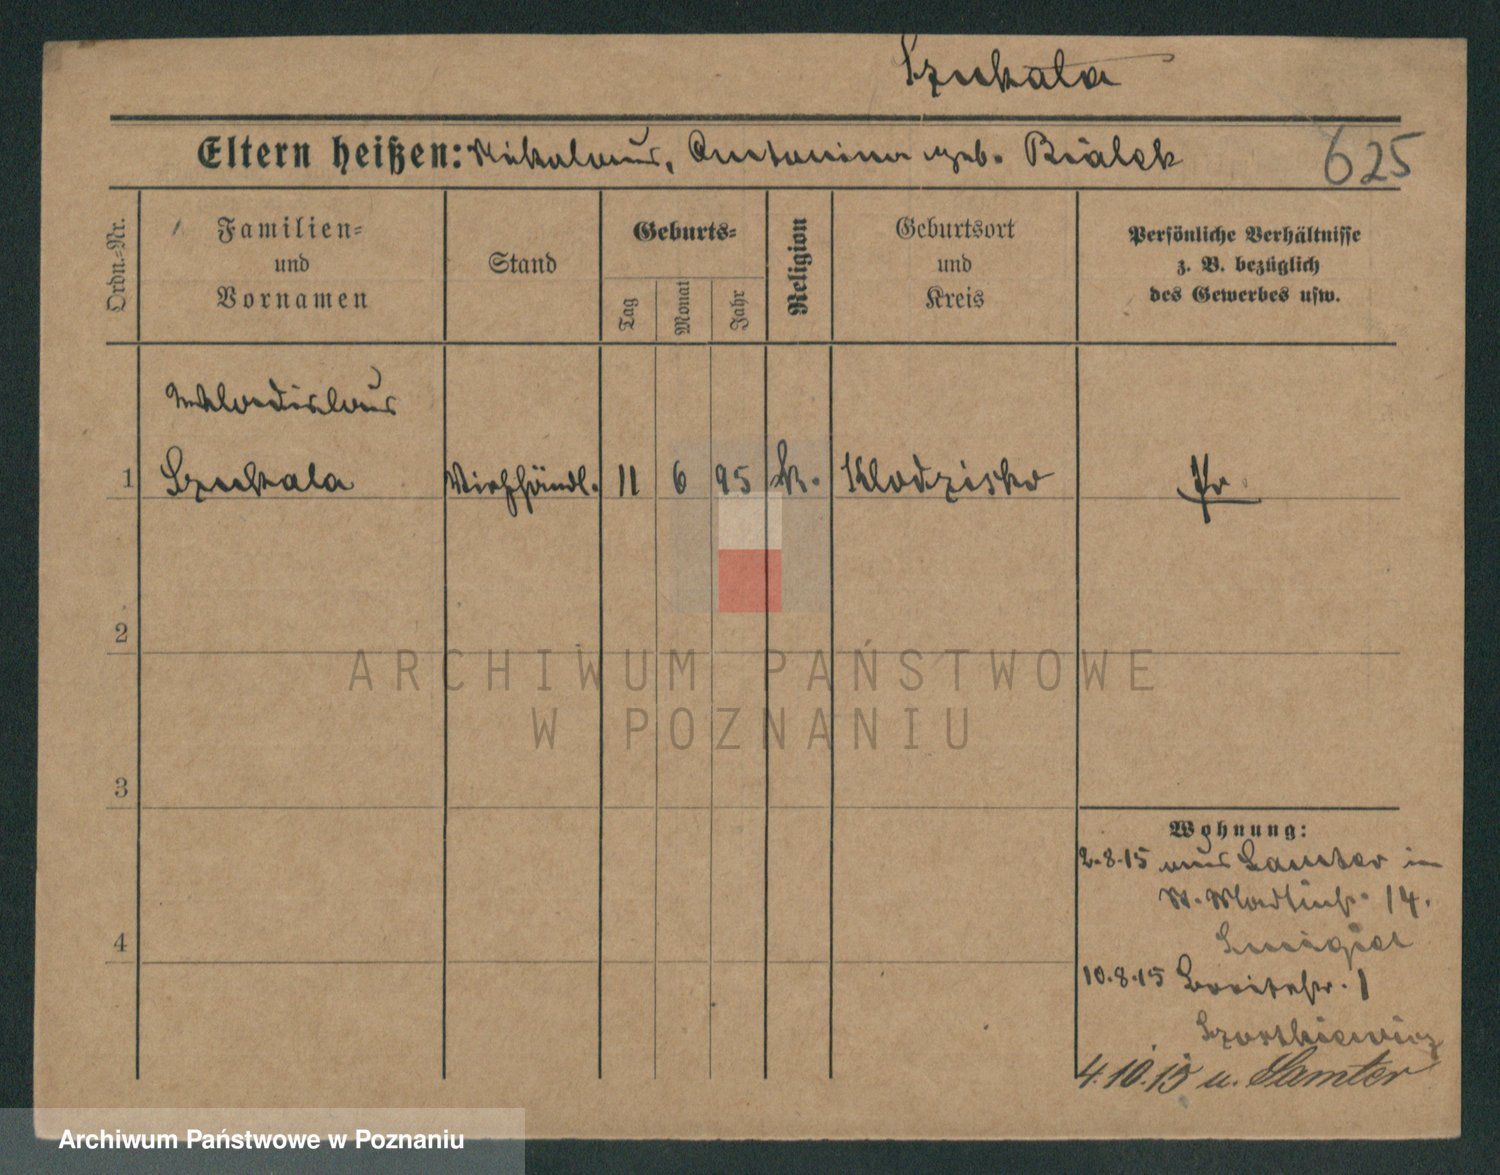 Szukala
Eltern heißen: Nikolaus, Antonina geb. Bialek
625
Ordn.-Nr.
Familien-
und
Vornamen
Stand
Geburts-
Tag
Monat
Jahr
Religion
Geburtsort
und
Kreis
Persönliche Verhältnisse
z. B. bezüglich
des Gewerbes usw.
Wladislaus
1 Szukala Viehhändl. 11 6 95 k. Klodzisko Pr
2
3
4
Wohnung:
2.8.15 aus Samter in
St. Martinstr. 14.
10.8.15 Breitestr. 1
4.10.15 n. Samter
ARCHIWUM PAŃSTWOWE
W POZNANIU
Archiwum Państwowe w Poznaniu